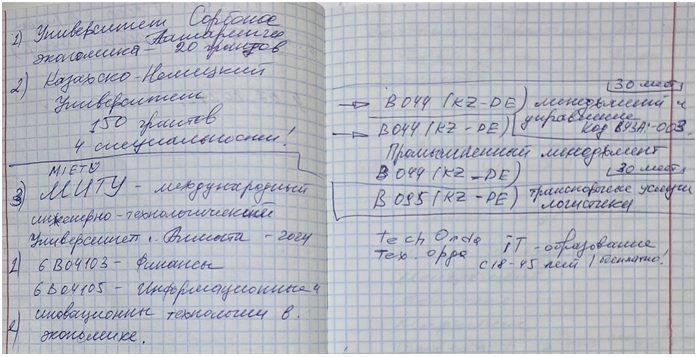 1) Университет Сорбонна
экономика - 20 грантов
2) Казахско-Немецкий
Университет
150 грантов
4 специальности!
МІЕТУ
3) МИТУ - международный
инженерно-технологический
Университет. Алматы - 2024
1) 6В04103 - Финансы
6В04105 - Информационные и
2) иновационны технологии в
экономике.
30 мест
→ В044 (KZ-DE) менеджмент и
управление
→ В044 (KZ-DE)
Промышленный менеджмент
В044 (KZ-DE) 30 мест
В095 (KZ-DE) транспортные услуги
логистика
Tech Orda iT-образование
Тех. орда с 18-45 лет / бесплатно!